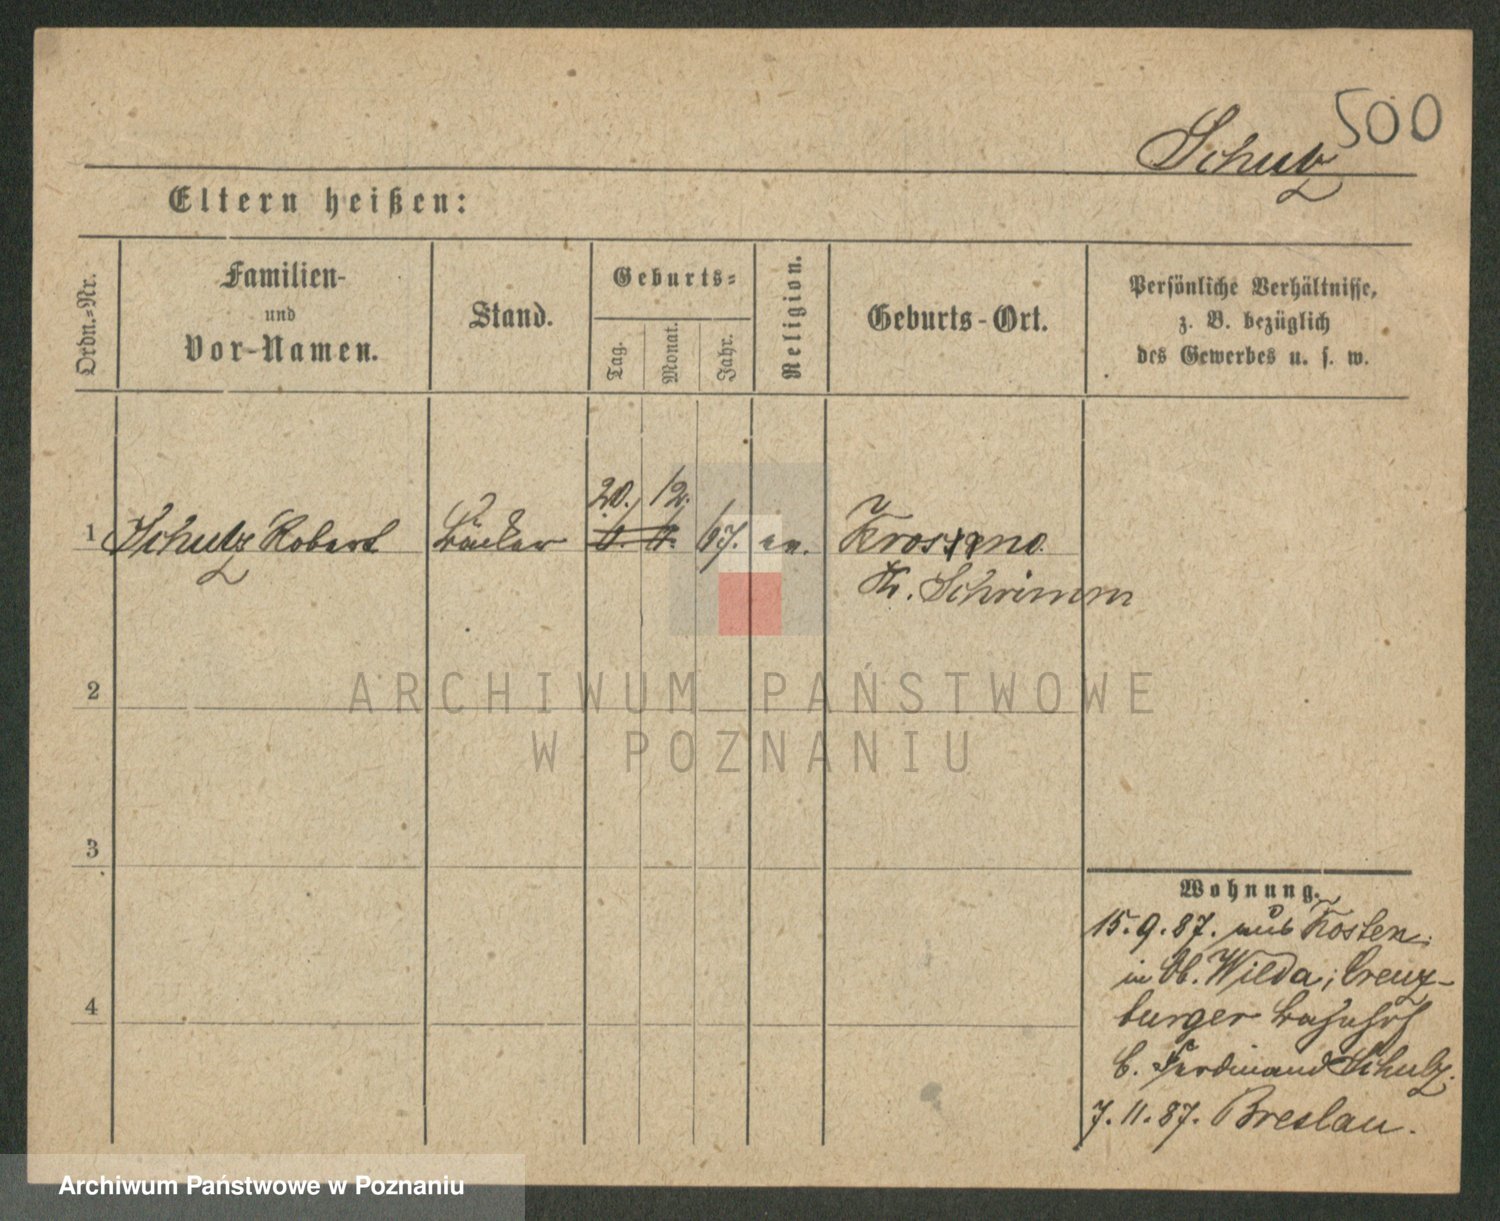 500
Schulz
Eltern heißen:
Ordn.-Nr.
Familien-
und
Vor-Namen.
Stand.
Geburts-
Tag.
Monat.
Jahr.
Religion.
Geburts-Ort.
Persönliche Verhältnisse,
z. B. bezüglich
des Gewerbes u. s. w.
20. 12.
1 Schulz Robert Bäcker 67. ev.
Kr. Schrimm
2
ARCHIWUM PAŃSTWOWE
W POZNANIU
3
4
Wohnung.
15.9.87. aus Kosten;
in Ob. Wilda; Creuz-
burger Bahnhof
b. Ferdinand Schulz.
7.11.87. Breslau.
Archiwum Państwowe w Poznaniu